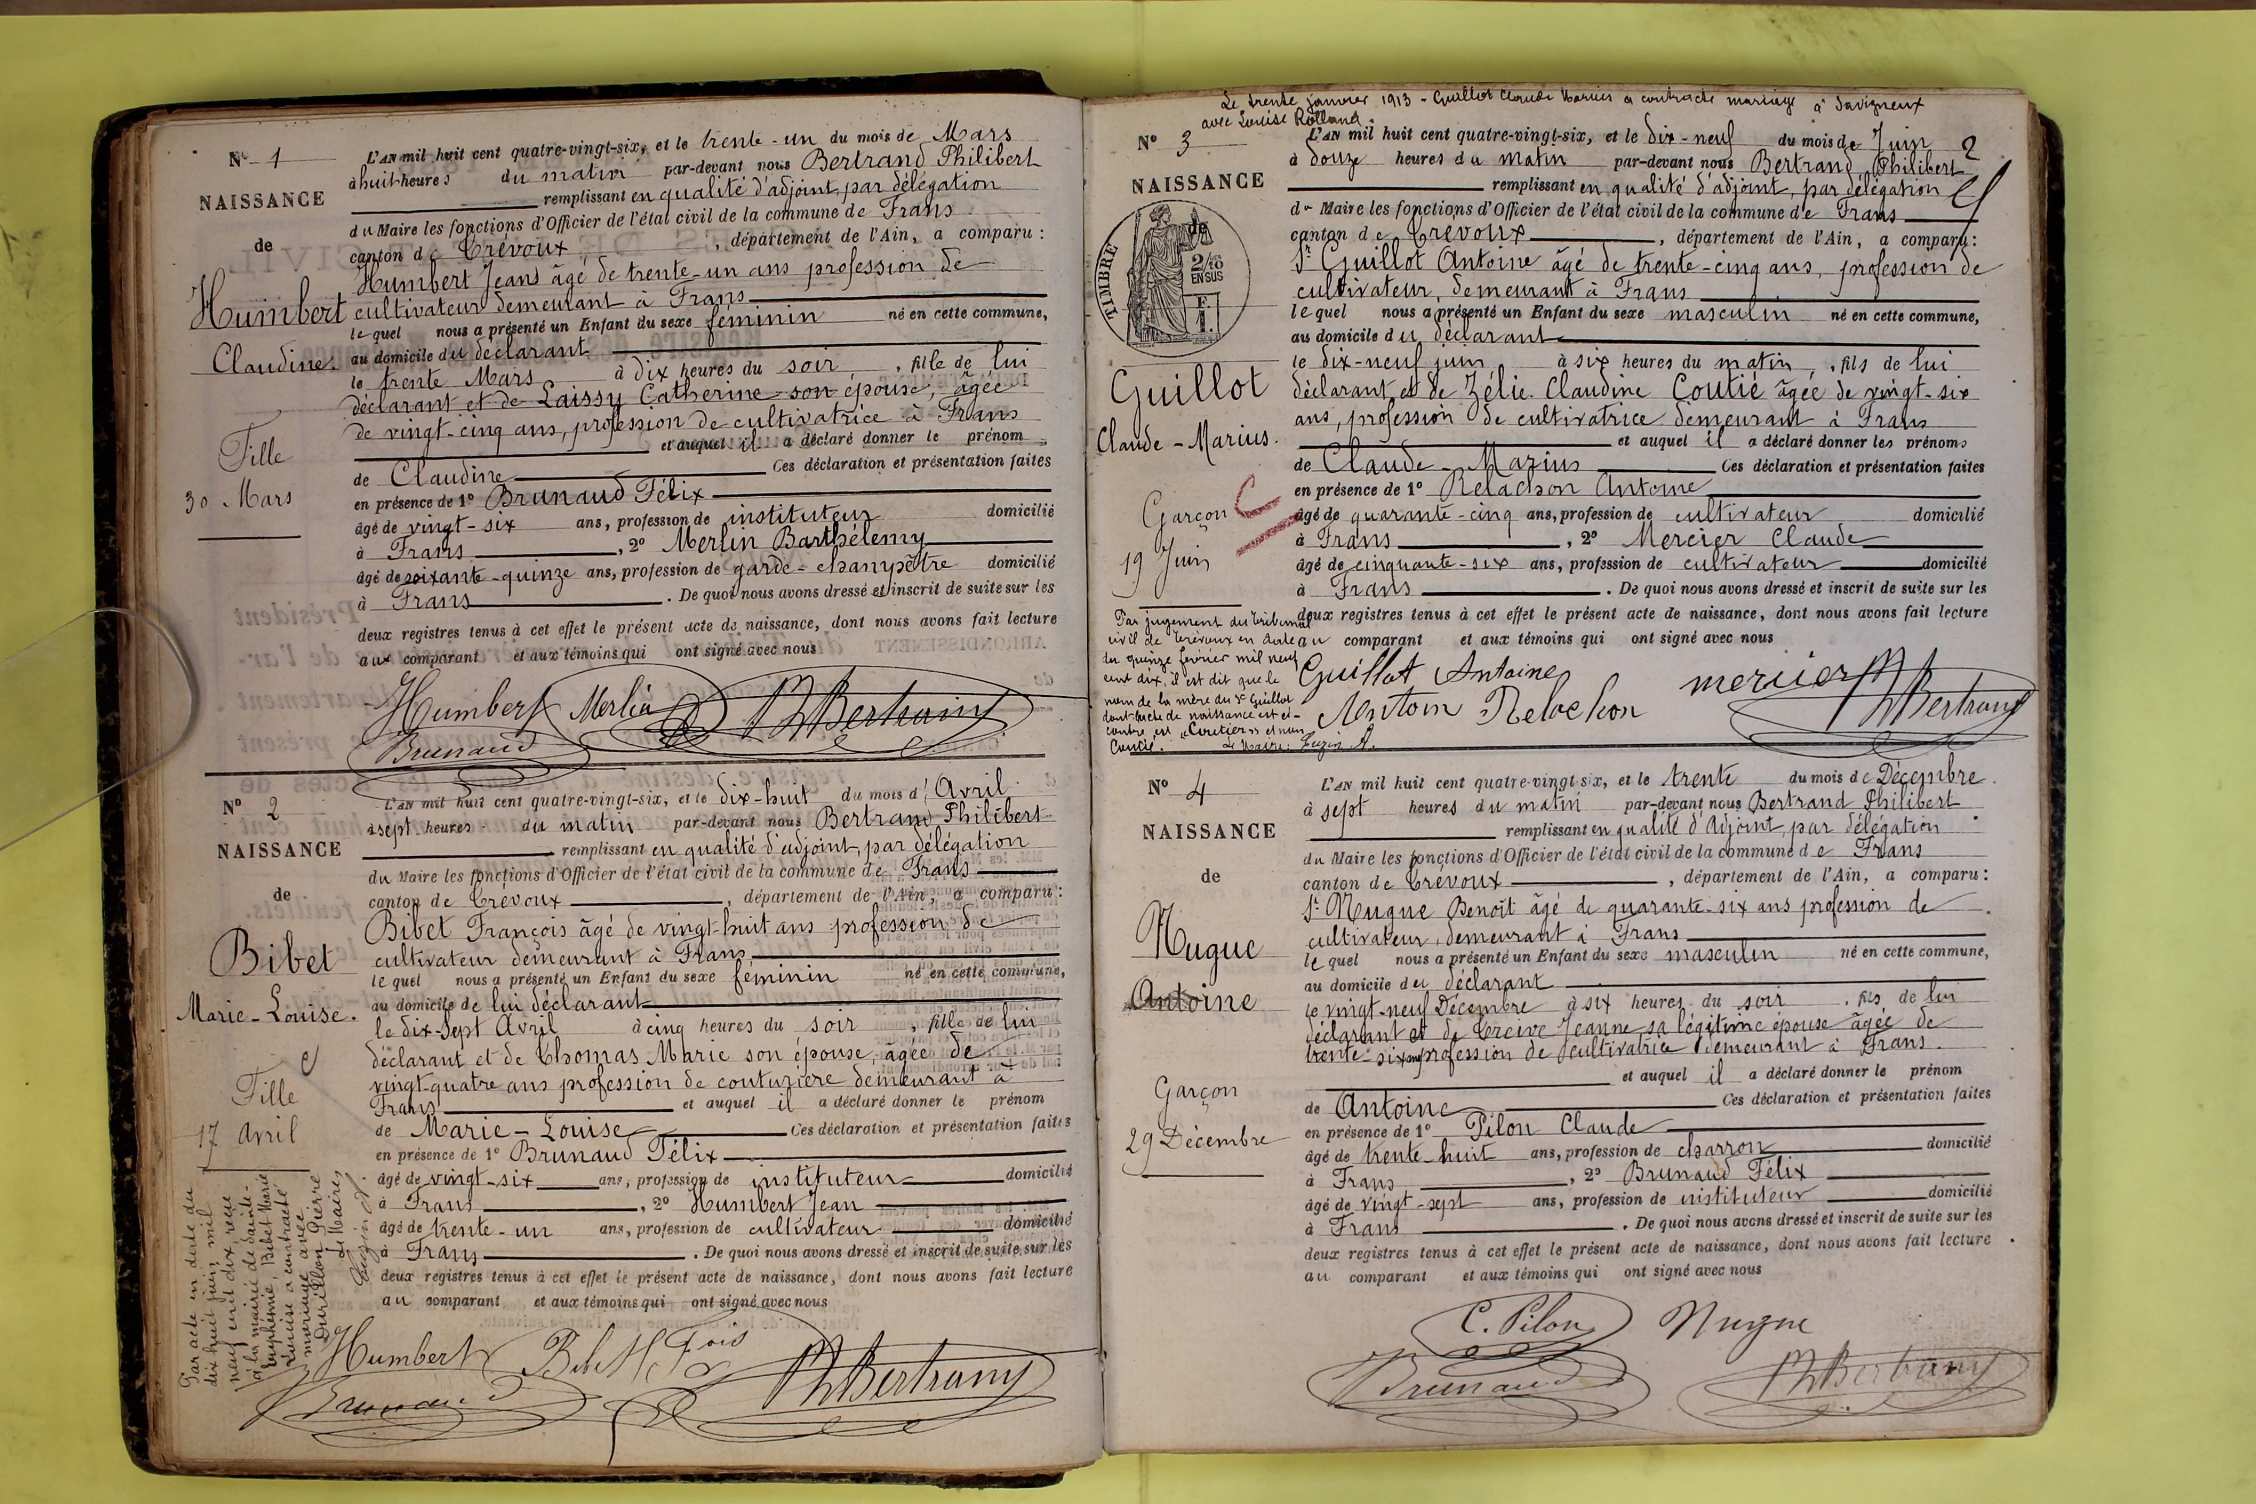 N° 1
NAISSANCE
de
Humbert
Claudine.
Fille
30 Mars
L'AN mil huit cent quatre-vingt-six, et le trente-un du mois de Mars
à huit heures du matin par-devant nous Bertrand Philibert
remplissant en qualité d'adjoint, par délégation
du Maire les fonctions d'Officier de l'état civil de la commune de Frans
canton de Trévoux, département de l'Ain, a comparu :
Humbert Jean âgé de trente-un ans profession de
cultivateur demeurant à Frans
lequel nous a présenté un Enfant du sexe féminin né en cette commune,
au domicile du déclarant
le trente Mars à dix heures du soir, fille de lui
déclarant et de Laissy Catherine son épouse, âgée
de vingt-cinq ans, profession de cultivatrice à Frans
et auquel il a déclaré donner le prénom
de Claudine Ces déclaration et présentation faites
en présence de 1° Brunaud Félix
âgé de vingt-six ans, profession de instituteur domicilié
à Frans, 2° Merlin Barthélemy
âgé de soixante-quinze ans, profession de garde-champêtre domicilié
à Frans. De quoi nous avons dressé et inscrit de suite sur les
deux registres tenus à cet effet le présent acte de naissance, dont nous avons fait lecture
aux comparant et aux témoins qui ont signé avec nous
Humbert Merlin Ph Bertrand
Brunaud
N° 2
NAISSANCE
de
Bibet
Marie-Louise.
Fille
17 Avril
Par acte en date du
dix huit juin mil
neuf cent dix, reçu
à la mairie de Sainte-
Euphémie, Bibet Marie
Louise a contracté
mariage avec
Durillon Pierre
Le Maire,
L'AN mil huit cent quatre-vingt-six, et le dix-huit du mois d'Avril
à sept heures du matin par-devant nous Bertrand Philibert
remplissant en qualité d'adjoint, par délégation
du Maire les fonctions d'Officier de l'état civil de la commune de Frans
canton de Trévoux, département de l'Ain, a comparu :
Bibet François âgé de vingt-huit ans profession de
cultivateur demeurant à Frans
lequel nous a présenté un Enfant du sexe féminin né en cette commune,
au domicile de lui déclarant
le dix-sept Avril à cinq heures du soir, fille de lui
déclarant et de Thomas Marie son épouse, âgée de
vingt-quatre ans profession de couturière demeurant à
Frans et auquel il a déclaré donner le prénom
de Marie-Louise Ces déclaration et présentation faites
en présence de 1° Brunaud Félix
âgé de vingt-six ans, profession de instituteur domicilié
à Frans, 2° Humbert Jean
âgé de trente-un ans, profession de cultivateur domicilié
à Frans. De quoi nous avons dressé et inscrit de suite sur les
deux registres tenus à cet effet le présent acte de naissance, dont nous avons fait lecture
au comparant et aux témoins qui ont signé avec nous
Humbert Bibet Fçois
Brunaud Ph Bertrand
Le trente janvier 1913 - Guillot Claude Marius a contracté mariage à Savigneux
avec Louise Rolland.
2
N° 3
NAISSANCE
de
TIMBRE
2/10
EN SUS
Guillot
Claude-Marius.
Garçon
19 Juin
Par jugement du tribunal
civil de Trévoux en date
du quinze février mil neuf
cent dix, il est dit que le
nom de la mère du Sr Guillot
dont l'acte de naissance est ci-
contre est "Coutier" et non
Coutié. Le Maire:
L'AN mil huit cent quatre-vingt-six, et le dix-neuf du mois de Juin
à douze heures du matin par-devant nous Bertrand Philibert
remplissant en qualité d'adjoint, par délégation
du Maire les fonctions d'Officier de l'état civil de la commune de Frans
canton de Trévoux, département de l'Ain, a comparu :
Sr Guillot Antoine âgé de trente-cinq ans, profession de
cultivateur, demeurant à Frans
lequel nous a présenté un Enfant du sexe masculin né en cette commune,
au domicile du déclarant
le dix-neuf juin à six heures du matin, fils de lui
déclarant et de Zélie Claudine Coutié âgée de vingt-six
ans, profession de cultivatrice demeurant à Frans
et auquel il a déclaré donner les prénoms
de Claude-Marius Ces déclaration et présentation faites
en présence de 1° Relachon Antoine
âgé de quarante-cinq ans, profession de cultivateur domicilié
à Frans, 2° Mercier Claude
âgé de cinquante-six ans, profession de cultivateur domicilié
à Frans. De quoi nous avons dressé et inscrit de suite sur les
deux registres tenus à cet effet le présent acte de naissance, dont nous avons fait lecture
au comparant et aux témoins qui ont signé avec nous
Guillot Antoine mercier
Antoin Relachon Ph Bertrand
N° 4
NAISSANCE
de
Nugue
Antoine
Garçon
29 Décembre
L'AN mil huit cent quatre-vingt-six, et le trente du mois de Décembre
à sept heures du matin par-devant nous Bertrand Philibert
remplissant en qualité d'Adjoint, par délégation
du Maire les fonctions d'Officier de l'état civil de la commune de Frans
canton de Trévoux, département de l'Ain, a comparu :
Sr Nugue Benoît âgé de quarante-six ans profession de
cultivateur, demeurant à Frans
lequel nous a présenté un Enfant du sexe masculin né en cette commune,
au domicile du déclarant
le vingt-neuf Décembre à six heures du soir, fils de lui
déclarant et de Jeanne, sa légitime épouse âgée de
trente-six ans profession de cultivatrice demeurant à Frans.
et auquel il a déclaré donner le prénom
de Antoine Ces déclaration et présentation faites
en présence de 1° Pilon Claude
âgé de trente-huit ans, profession de charron domicilié
à Frans, 2° Brunaud Félix
âgé de vingt-sept ans, profession de instituteur domicilié
à Frans. De quoi nous avons dressé et inscrit de suite sur les
deux registres tenus à cet effet le présent acte de naissance, dont nous avons fait lecture
au comparant et aux témoins qui ont signé avec nous
C. Pilon Nugue
Brunaud Ph Bertrand